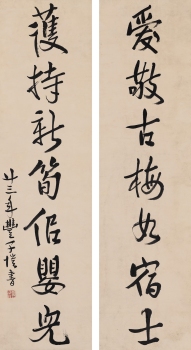 愛敬古梅如宿士
護持新筍佀嬰兒
廿三年豐子愷書